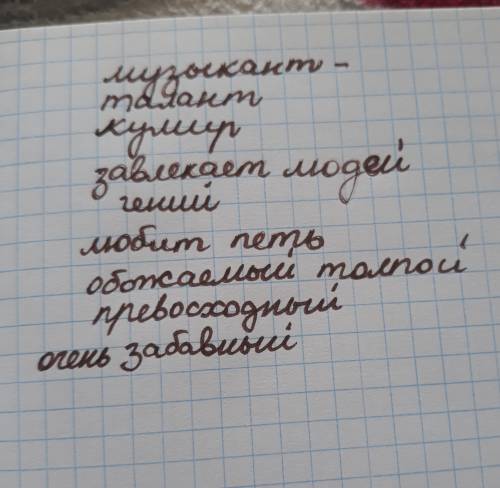 музыкант -
талант
кумир
завлекает людей
гений
любит петь
обожаемый толпой
превосходный
очень забавный